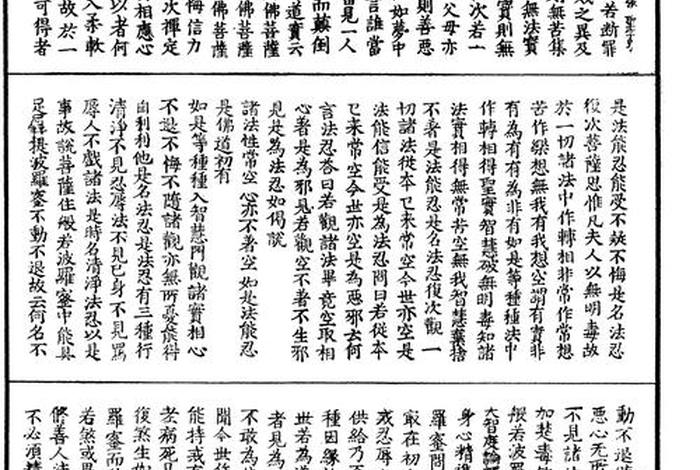 若斷罪
及之異及
則無苦集
無法實
實則無
次若一
父母亦
則善惡
如夢中
言誰當
見一人
而顛倒
道實云
佛菩薩
佛菩薩
佛菩薩
悔信力
次禪定
相應心
以者何
入柔軟
故於一
可得者
是法能忍能受不疑不悔是名法忍
復次菩薩思惟凡夫人以無明毒故
於一切諸法中作轉相非常作常想
苦作樂想無我有我想空謂有實非
有為有有為非有如是等種種法中
作轉相得聖實智慧破無明毒知諸
法實相得無常苦空無我智慧棄捨
不著是法能忍是名法忍復次觀一
切諸法從本已來常空今世亦空是
法能信能受是為法忍問曰若從本
已來常空今世亦空是為惡邪云何
言法忍答曰若觀諸法畢竟空取相
心著是為邪見若觀空不著不生邪
見是為法忍如偈說
諸法性常空 心亦不著空 如是法能忍
是佛道初有
如是等種種入智慧門觀諸實相心
不退不悔不隨諸觀亦無所憂能得
自利利他是名法忍是法忍有三種行
清淨不見忍辱法不見己身不見罵
辱人不戲諸法是時名清淨法忍以是
事故說菩薩住般若波羅蜜中能具
足羼提波羅蜜不動不退故云何名不
動不退
惡心无
不見諸
加楚毒
般若波羅
大智度論
身心精進
羅蜜問
最在初
戒忍辱
供給乃
種因緣
世若為
者見為
不敢為
聞今世
能持戒
老病死
復煞生
羅蜜而
若煞或
脩善人
不必須